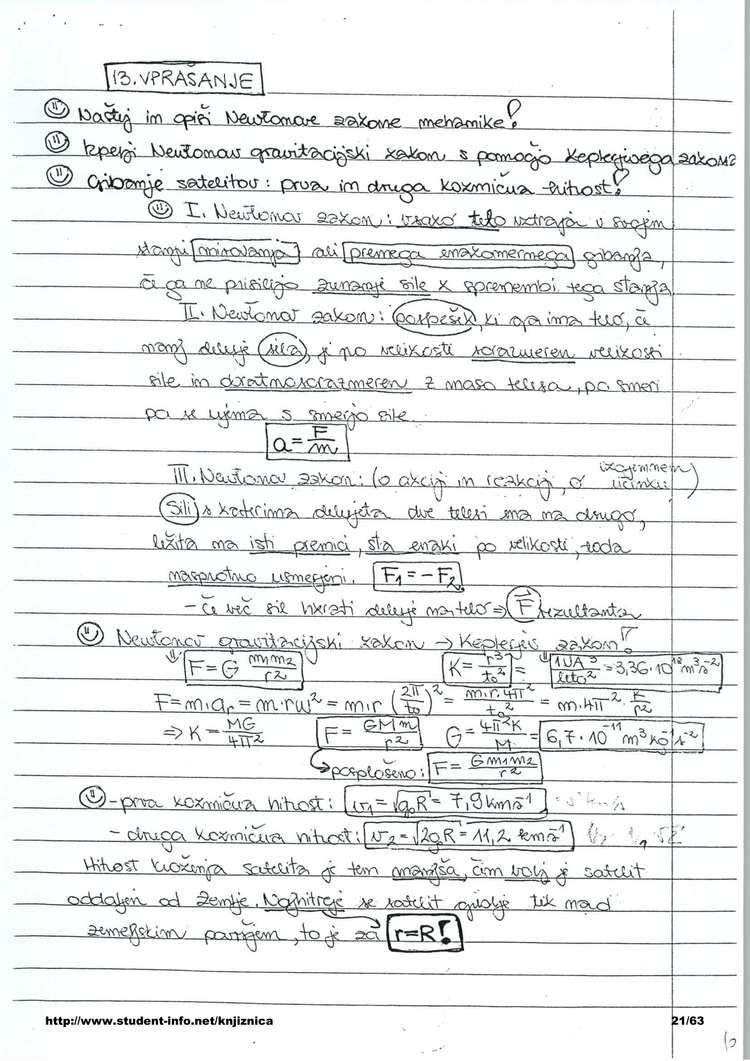 13. VPRAŠANJE
Naštej in opiši Newtonove zakone mehanike!
Izpelji Newtonov gravitacijski zakon s pomočjo Keplerjevega zakona
Gibanje satelitov: prva in druga kozmična hitrost!
I. Newtonov zakon: vsako telo vztraja v svojem
stanju mirovanja ali premega enakomernega gibanja,
če ga ne prisilijo zunanje sile k spremembi tega stanja
II. Newtonov zakon: pospešek, ki ga ima telo, če
nanj deluje sila, je po velikosti sorazmeren velikosti
sile in obratnosorazmeren z maso telesa, po smeri
pa se ujema s smerjo sile
a = F/m
III. Newtonov zakon: (o akciji in reakciji, o vzajemnem učinku)
Sili s katerima delujeta dve telesi ena na drugo,
ležita na isti premici, sta enaki po velikosti, toda
nasprotno usmerjeni. F₁ = -F₂
- Če več sil hkrati deluje na telo ⇒ F rezultanta
Newtonov gravitacijski zakon → Keplerjev zakon!
F = G m₁m₂/r² K = r³/t₀² = 1UA³/leto² = 3,36·10¹⁸ m³s⁻²
F = m·aᵣ = m·rω² = m·r (2π/t₀)² = m·r·4π²/t₀² = m·4π²·K/r²
⇒ K = MG/4π² F = GMm/r² G = 4π²K/M = 6,7·10⁻¹¹ m³kg⁻¹s⁻²
posplošeno: F = Gm₁m₂/r²
- prva kozmična hitrost: v₁ = √g₀R = 7,9 kms⁻¹
- druga kozmična hitrost: v₂ = √2g₀R = 11,2 kms⁻¹
Hitrost kroženja satelita je tem manjša, čim bolj je satelit
oddaljen od Zemlje. Najhitreje se satelit giblje tik nad
zemeljskim površjem, to je za r=R!
http://www.student-info.net/knjiznica 21/63